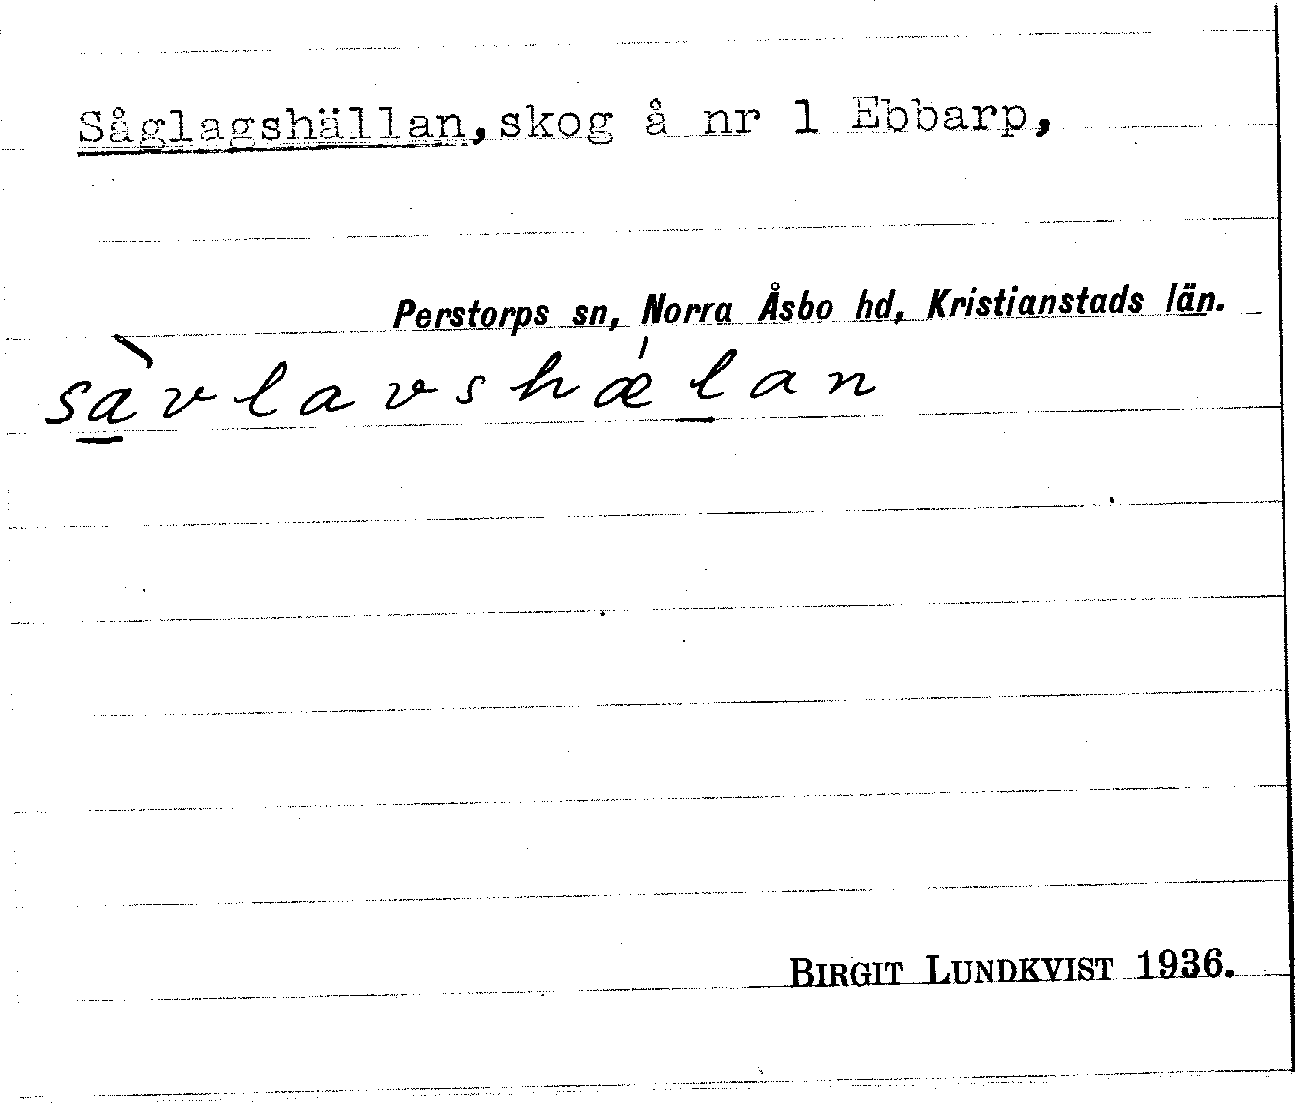 Såglagshällan, skog å nr 1 Ebbarp,
Perstorps sn, Norra Åsbo hd, Kristianstads län.
sà̲vlavshǽl̲an
BIRGIT LUNDKVIST 1936.